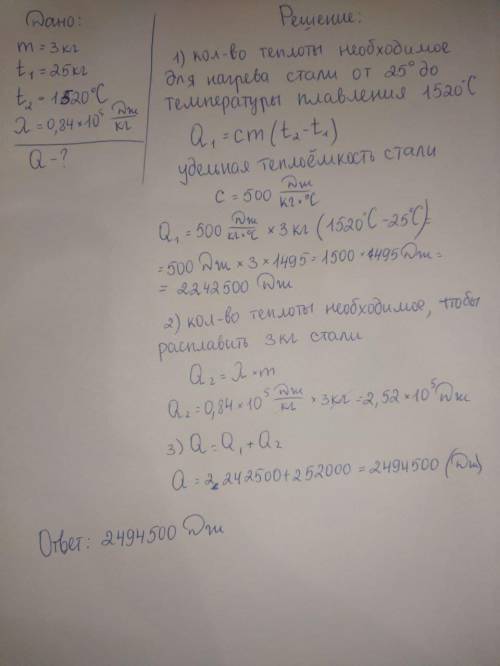 Дано:
m = 3 кг
t₁ = 25 кг
t₂ = 1520°C
λ = 0,84 × 10⁵ Дж/кг
Q - ?
Решение:
1) кол-во теплоты необходимое
для нагрева стали от 25° до
температуры плавления 1520°C
Q₁ = cm (t₂ - t₁)
удемная теплоёмкость стали
c = 500 Дж/кг·°C
Q₁ = 500 Дж/кг·°C × 3 кг (1520°C - 25°C) =
= 500 Дж × 3 × 1495 = 1500 · 1495 Дж =
= 2242500 Дж
2) кол-во теплоты необходимое, чтобы
расплавить 3 кг стали
Q₂ = λ × m
Q₂ = 0,84 × 10⁵ Дж/кг × 3 кг = 2,52 × 10⁵ Дж
3) Q = Q₁ + Q₂
Q = 2 242500 + 252000 = 2494500 (Дж)
Ответ: 2494500 Дж